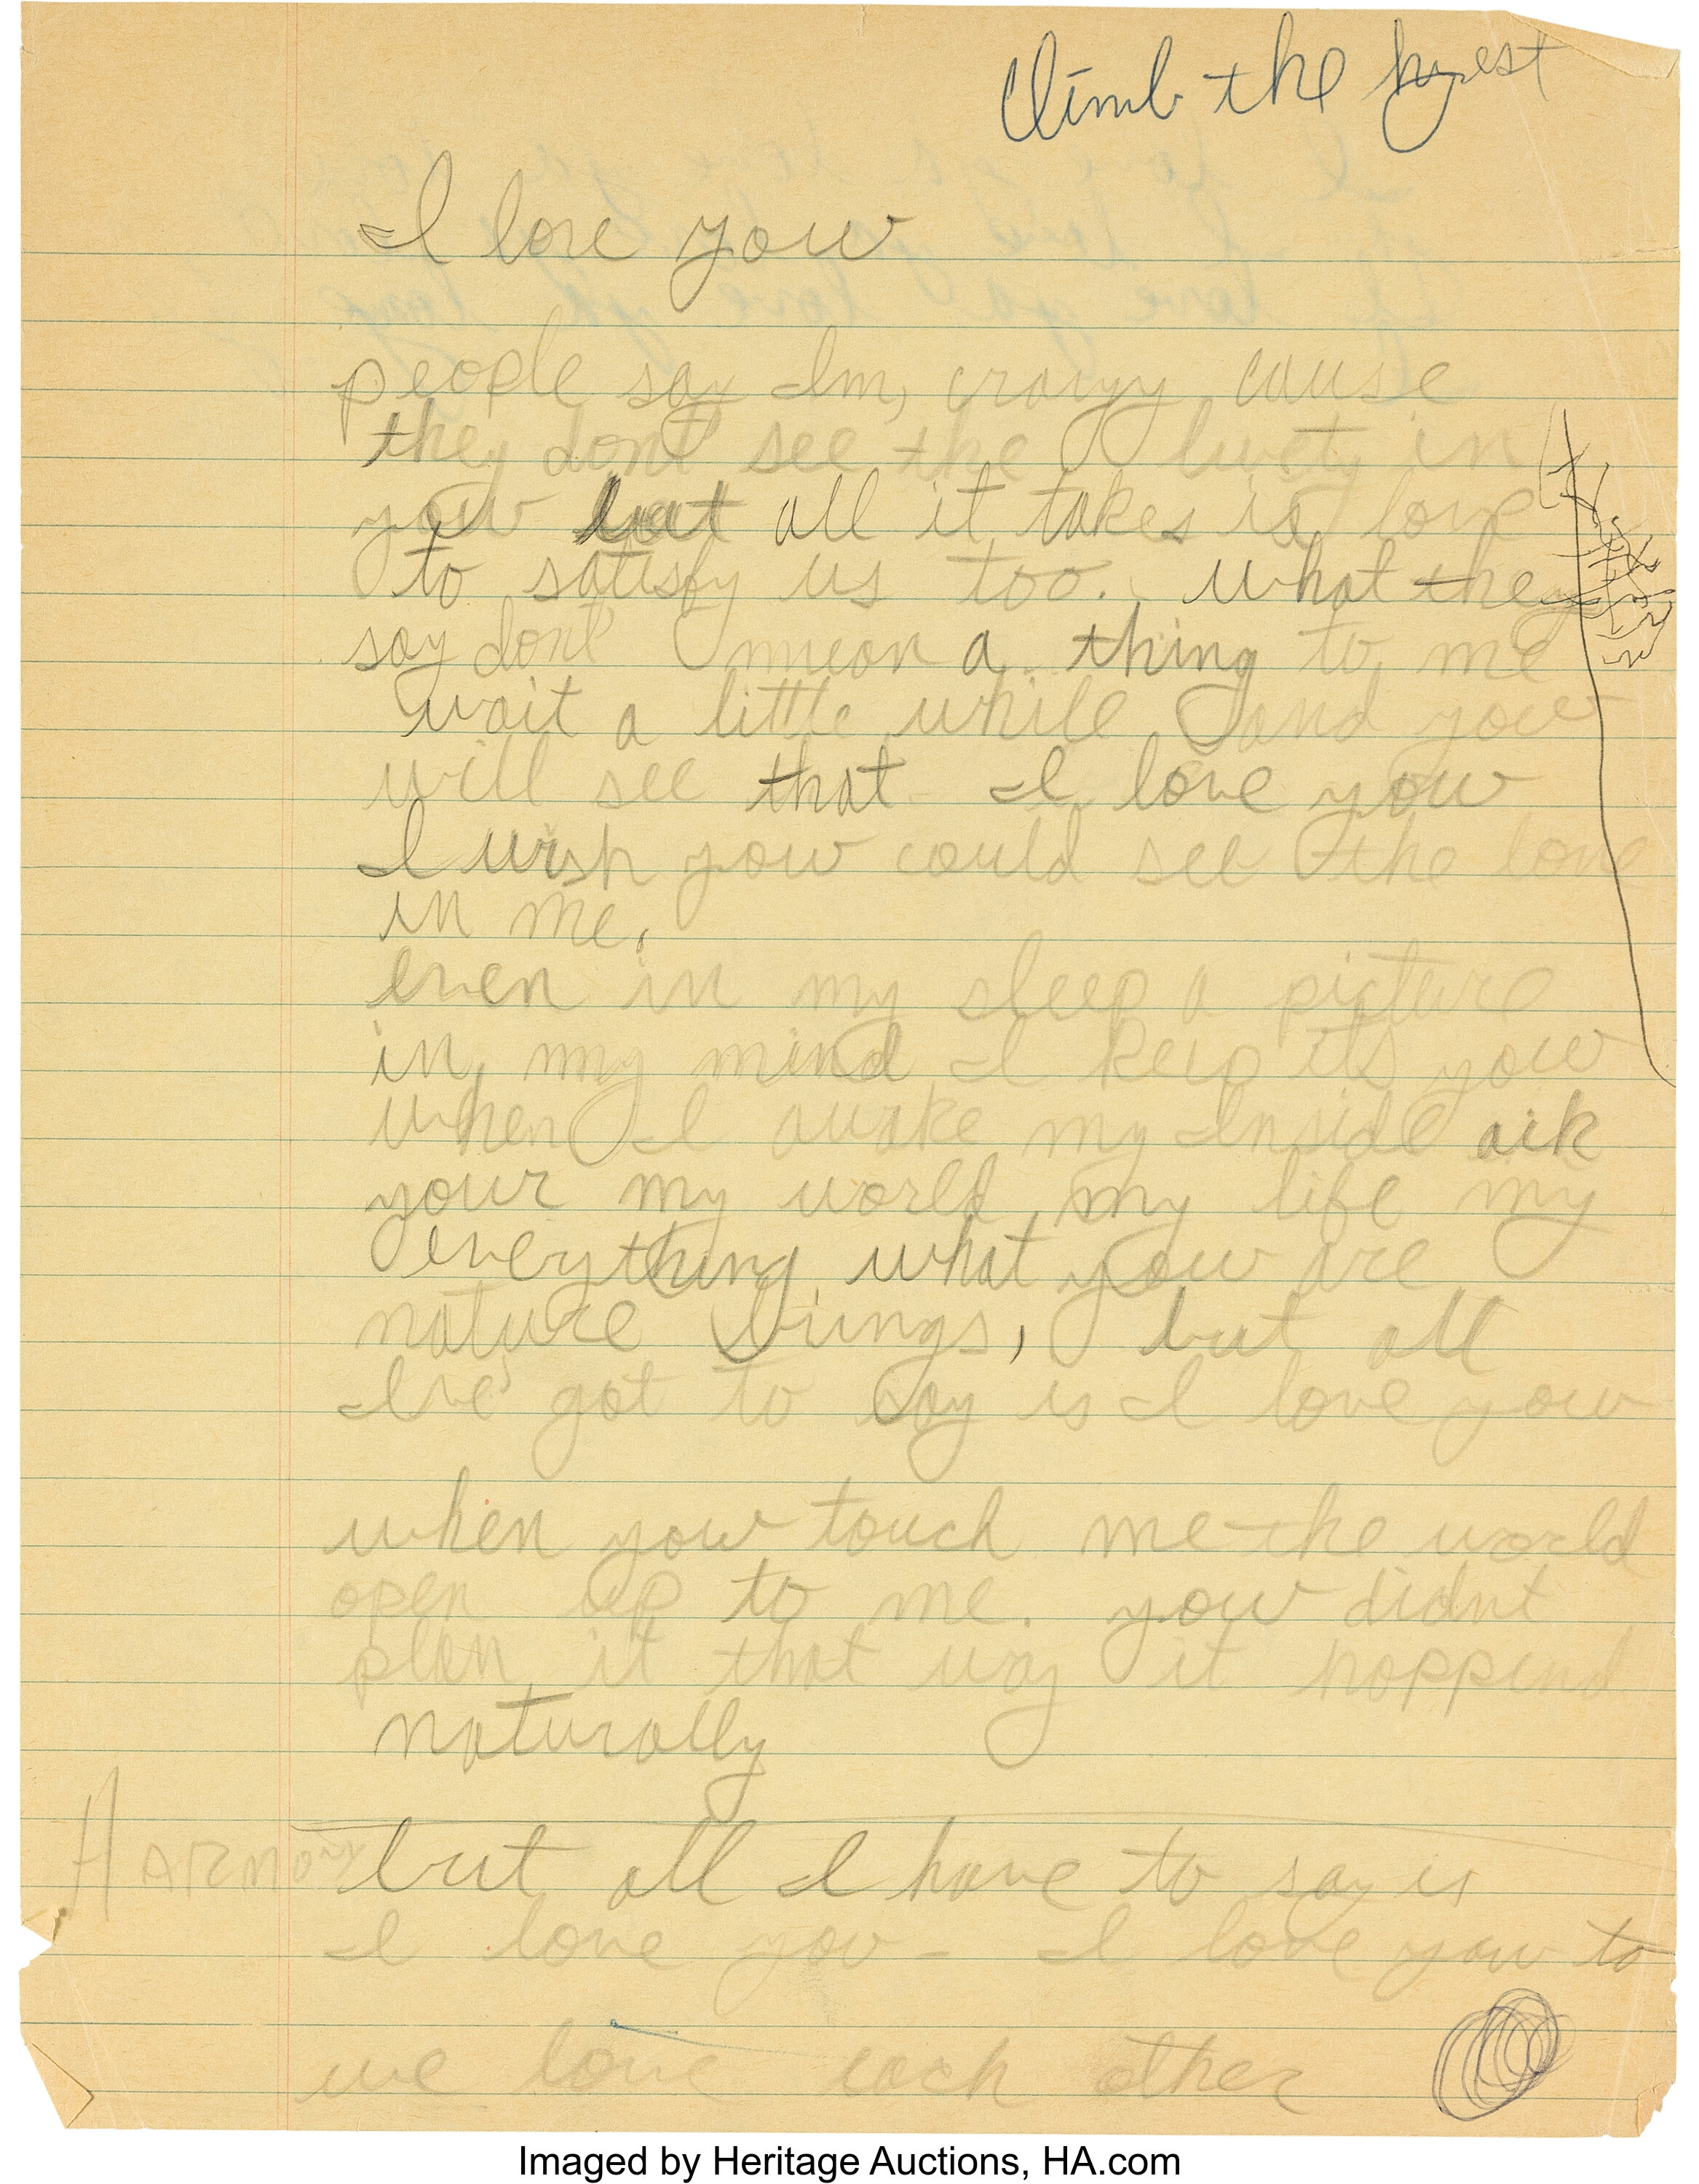 Climb the hyest
I love you
people say Im, crazy cause
they dont see the buety in
you but all it takes is love
to satisfy us too. what they
say dont mean a thing to me
wait a little while and you
will see that I love you
I wish you could see the love
in me.
even in my sleep a picture
in my mind I keep its you
when I awake my Inside aik
your my world my life my
everything what you are
nature brings, but all
I've got to say is I love you
when you touch me the world
open up to me. you didnt
plan it that way it happend
naturally
HARMONY but all I have to say is
I love you - I love you to
we love each other
Imaged by Heritage Auctions, HA.com